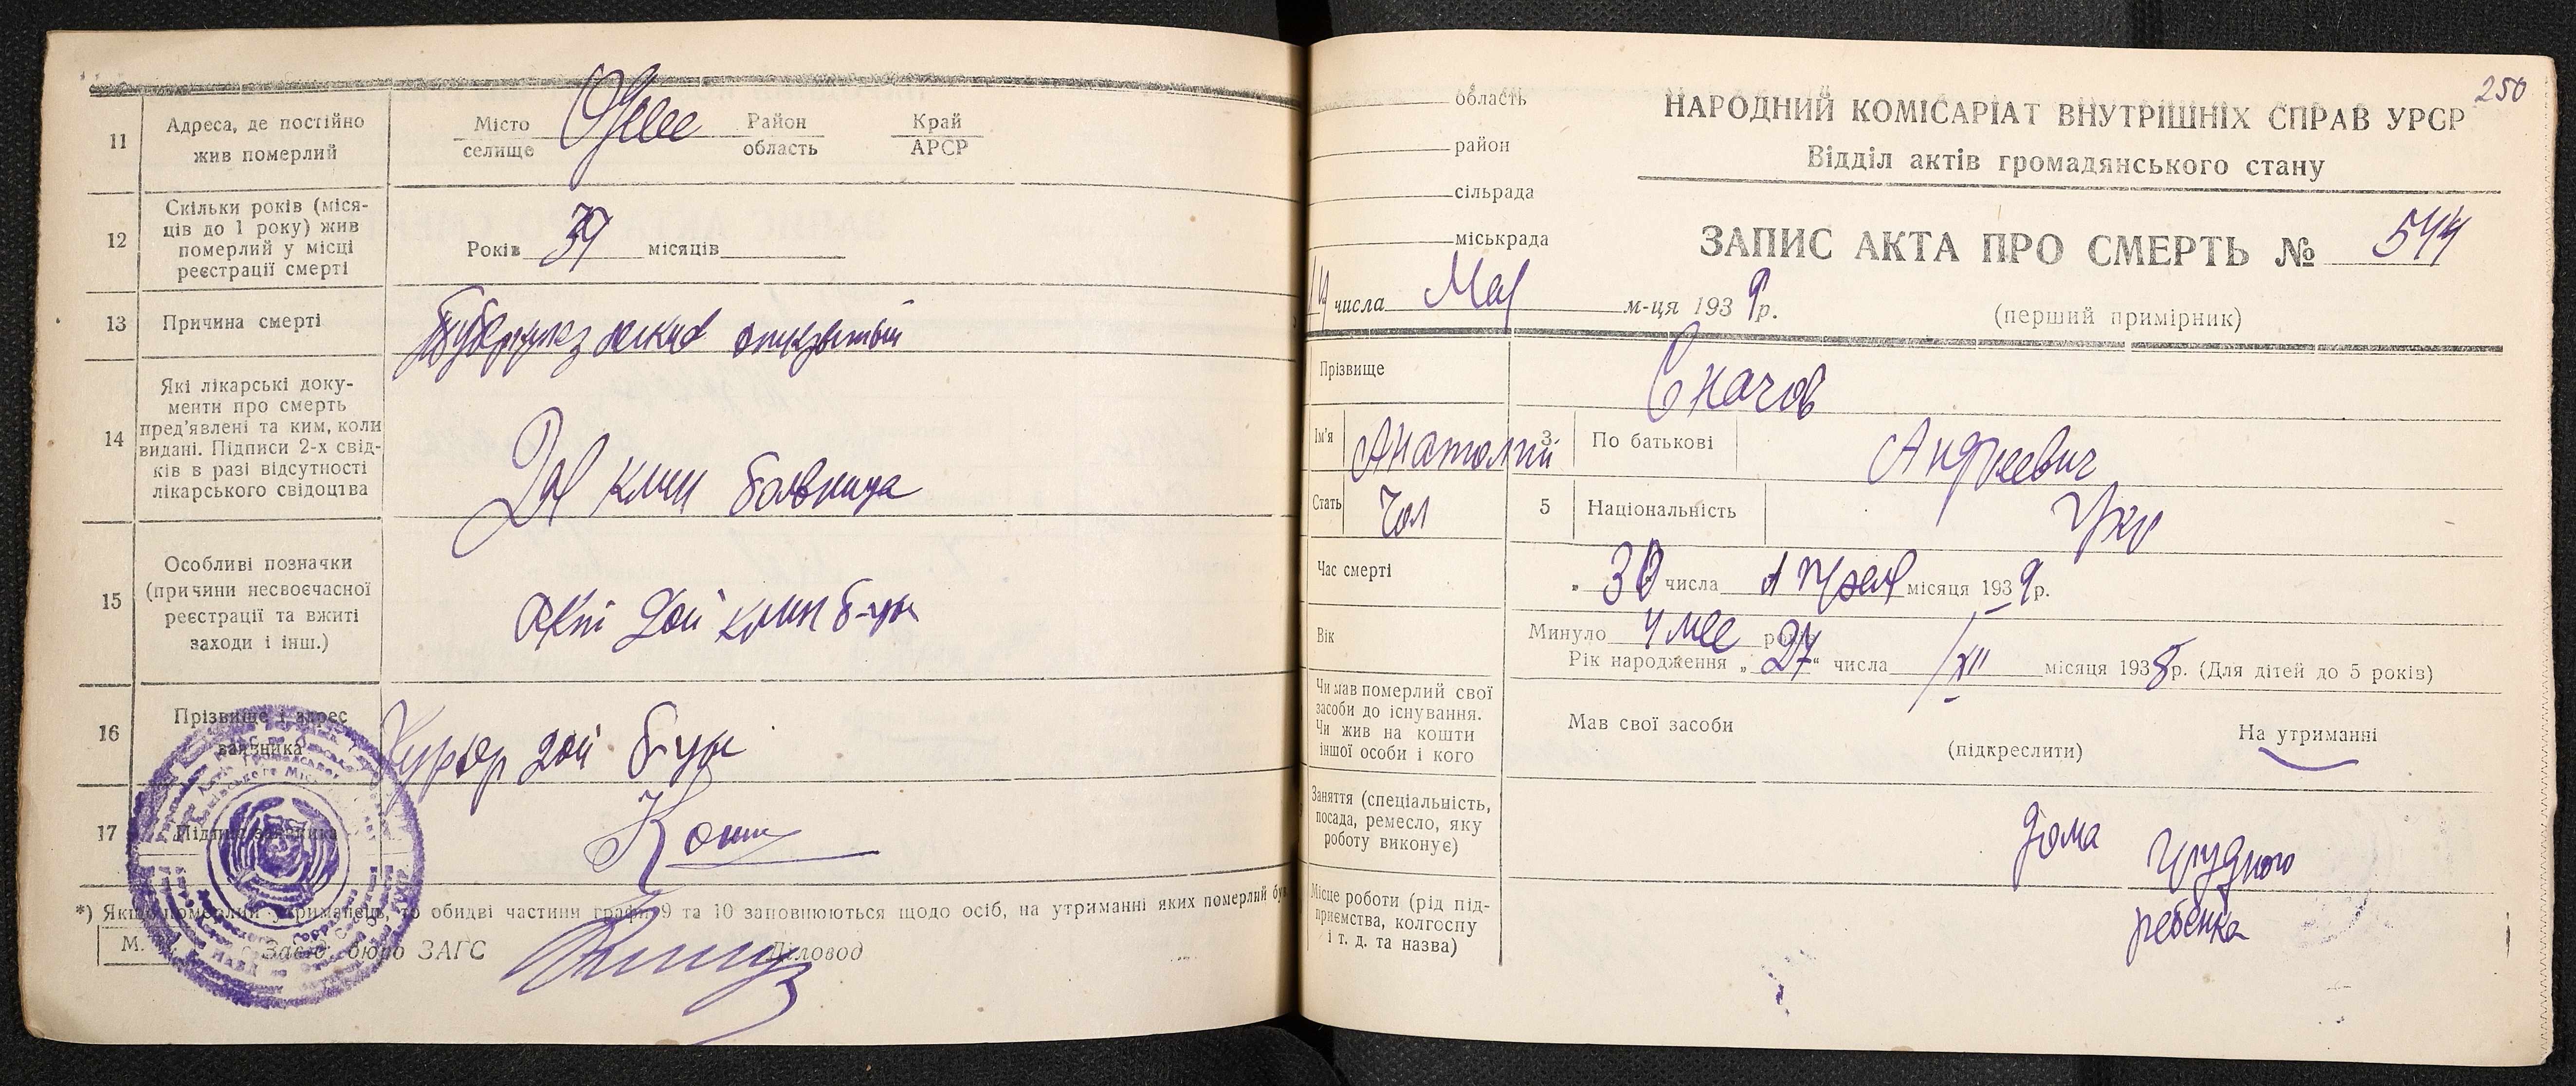 11
Адреса, де постійно
жив померлий
Місто
селище
Район
область
Край
АРСР
12
Скільки років (міся-
ців до 1 року) жив
померлий у місці
реєстрації смерті
Років 39 місяців
13
Причина смерті
открытый
14
Які лікарські доку-
менти про смерть
пред'явлені та ким, коли
видані. Підписи 2-х свід-
ків в разі відсутності
лікарського свідоцтва
клин больница
15
Особливі позначки
(причини несвоєчасної
реєстрації та вжиті
заходи і інш.)
Акт 2ой клин б-цы
16
Прізвище і адрес
заявника
Курьер 2ой б-цы
17
Підпис заявника
*) Якщо померлий утриманець, то обидві частини графи 9 та 10 заповнюються щодо осіб, на утриманні яких померлий був
М.
Завід. бюро ЗАГС
Діловод
250
область
район
сільрада
міськрада
НАРОДНИЙ КОМІСАРІАТ ВНУТРІШНІХ СПРАВ УРСР
Відділ актів громадянського стану
ЗАПИС АКТА ПРО СМЕРТЬ № 544
14 числа Мая м-ця 1939 р.
(перший примірник)
Прізвище
Ім'я Анатолий
3
По батькові Андреевич
Стать Чол
5
Національність Укр
Час смерті
„ 30 числа Апреля місяця 1939 р.
Вік
Минуло 4 мес років
Рік народження „ 27 “ числа XII місяця 1938 р. (Для дітей до 5 років)
Чи мав померлий свої
засоби до існування.
Чи жив на кошти
іншої особи і кого
Мав свої засоби
(підкреслити)
На утриманні
Заняття (спеціальність,
посада, ремесло, яку
роботу виконує)
дома грудного
ребенка
Місце роботи (рід під-
приємства, колгоспу
і т. д. та назва)